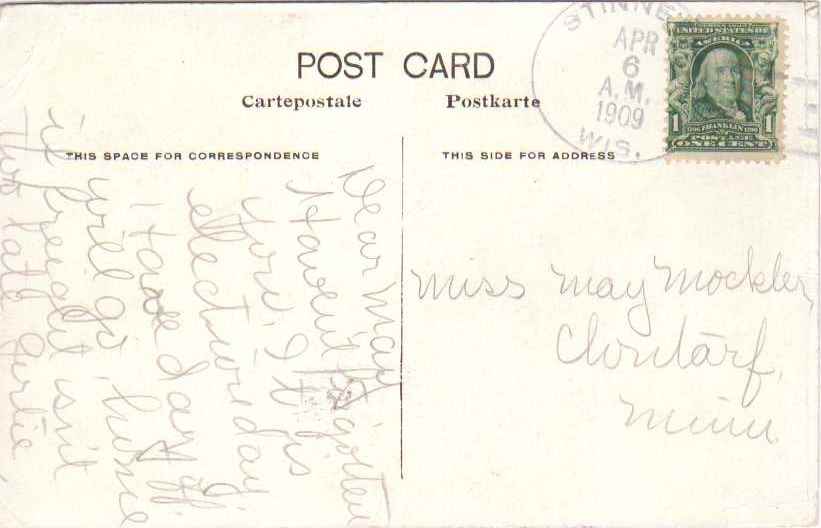 POST CARD
Cartepostale Postkarte
THIS SPACE FOR CORRESPONDENCE
THIS SIDE FOR ADDRESS
STINNE
APR
6
A.M.
1909
WIS.
UNITED STATES OF
AMERICA
1 1706 FRANKLIN 1790 1
POSTAGE
ONE CENT
Dear May
Havent forgotten
you. It is
election day
I have day off
will go home
if freight isn't
too late Gertie
Miss May Mockler,
Clontarf,
Minn